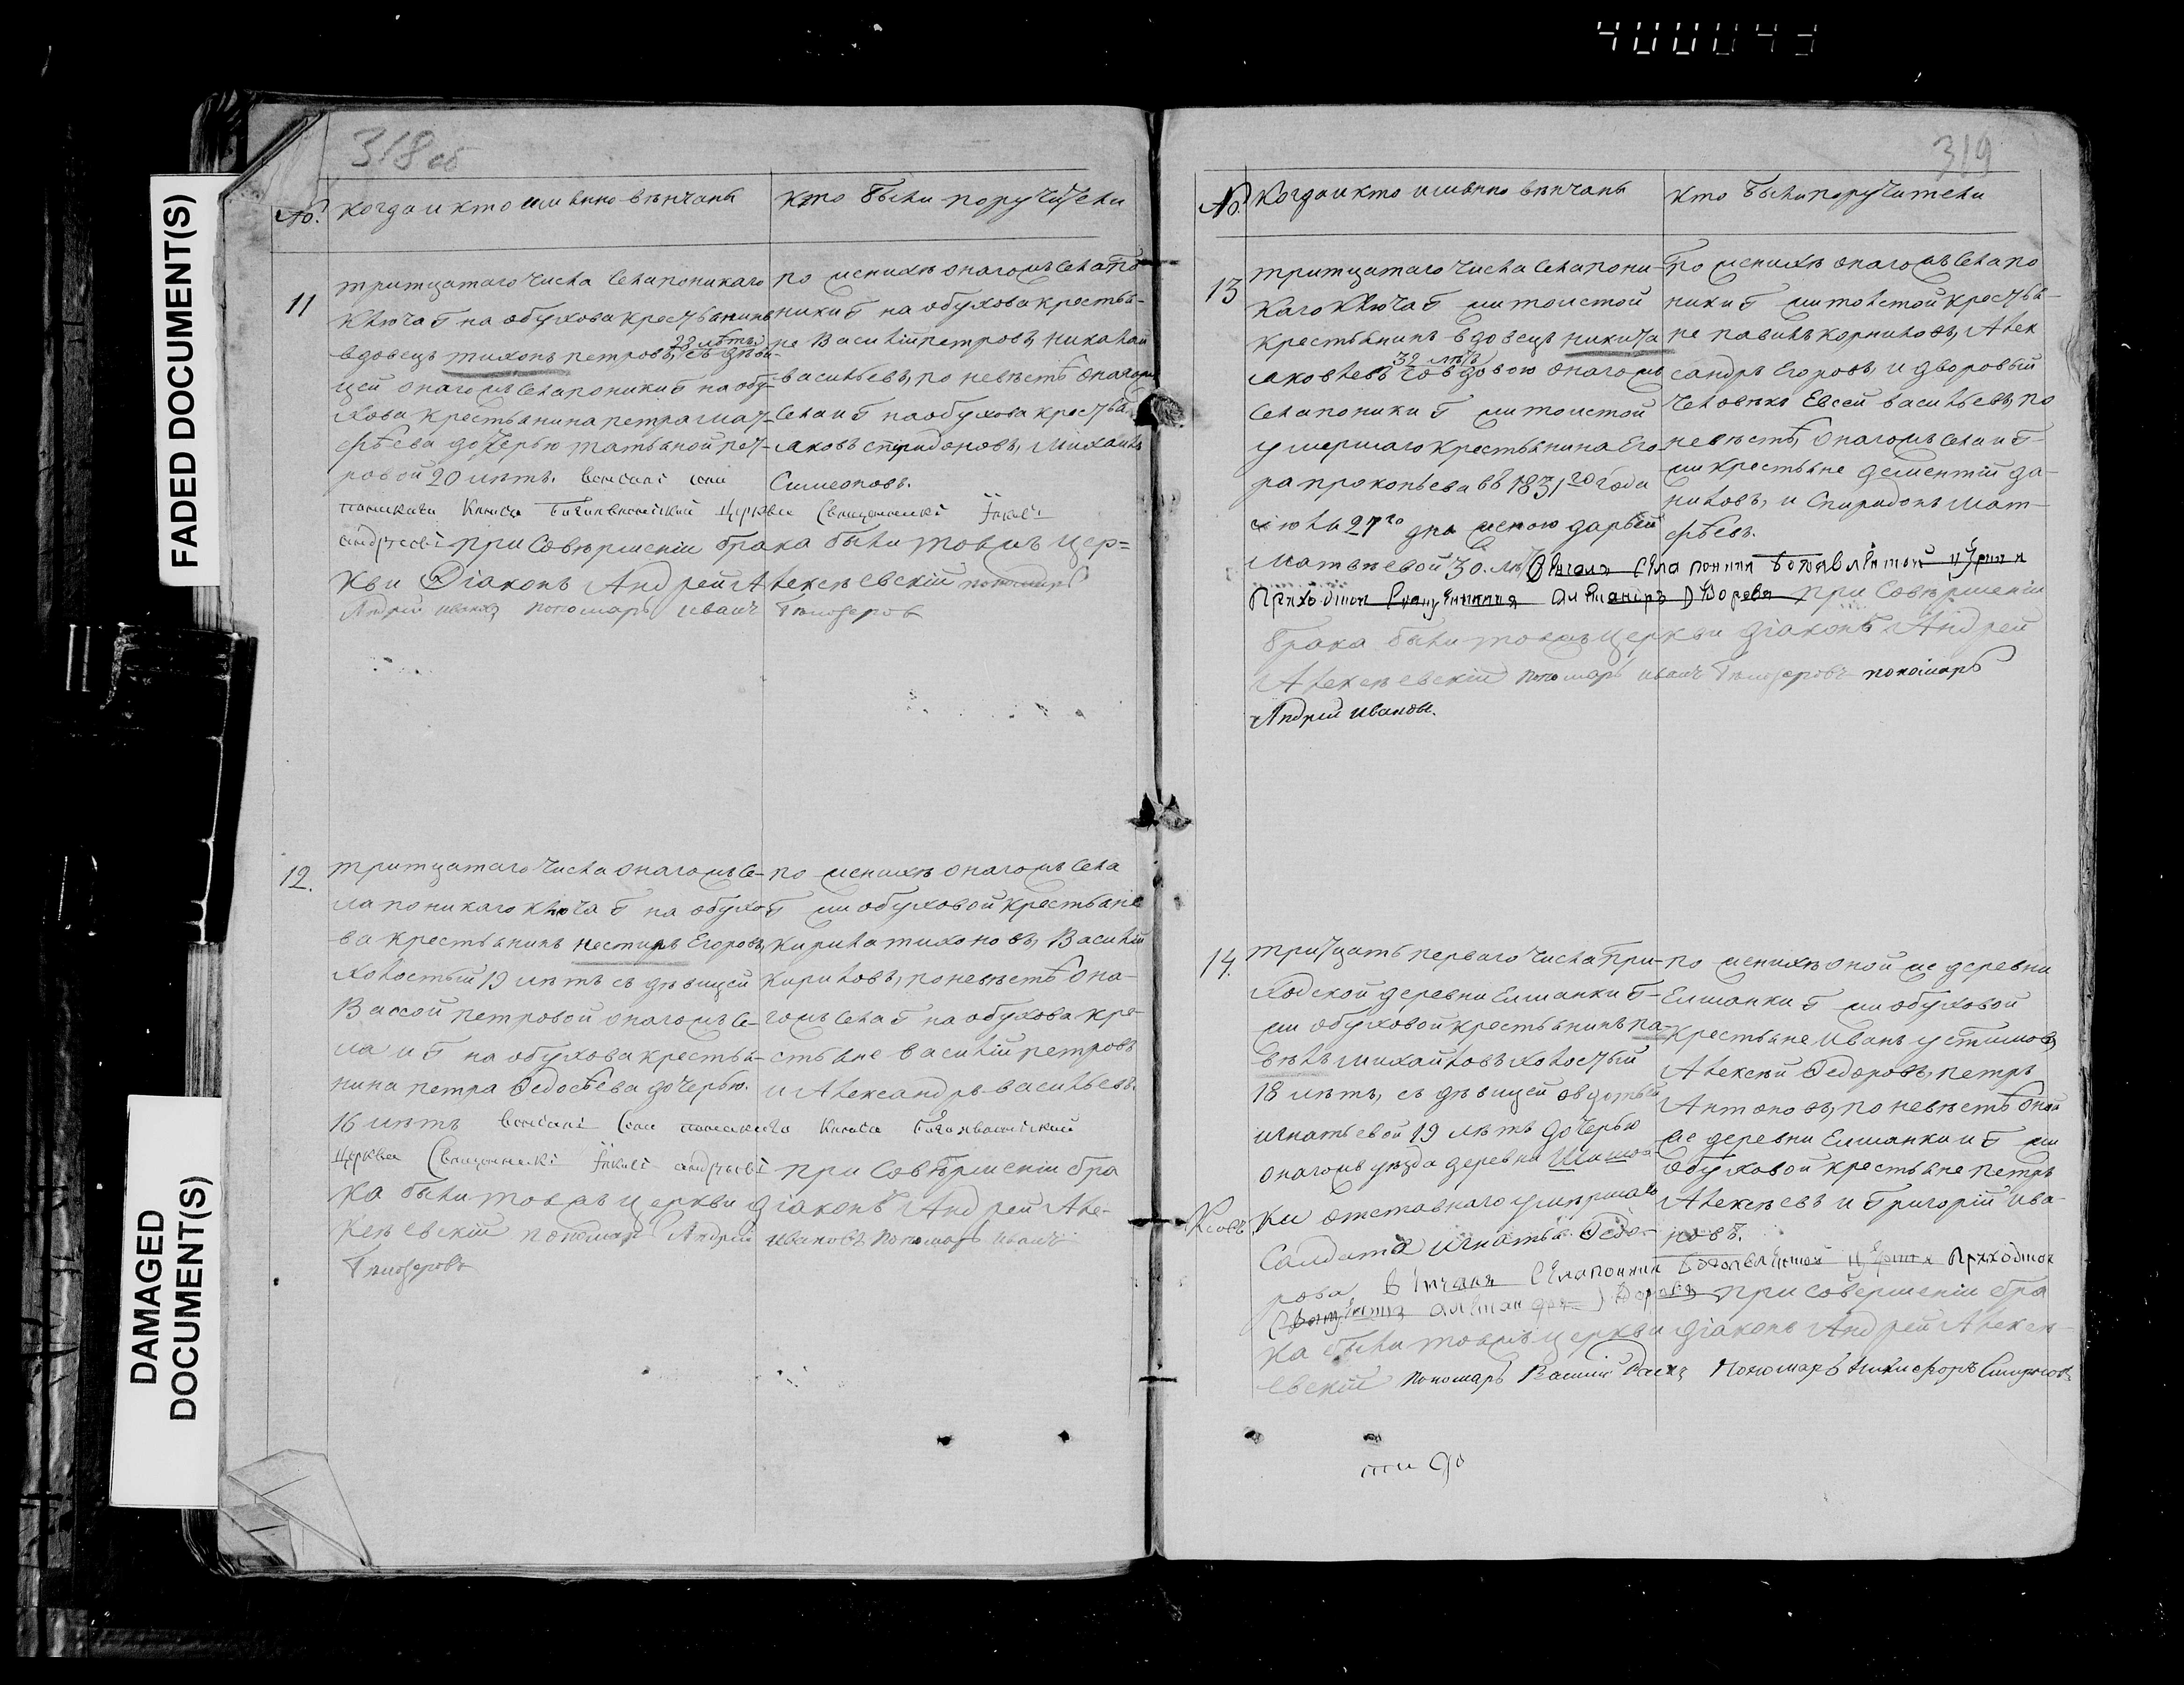 4000043
FADED DOCUMENT(S)
DAMAGED
DOCUMENT(S)
318 об
№. когда и кто имянно вѣнчаны
кто были поручители
11
тритцатаго числа села поникаго
ключа г на обухова крестьянинъ
вдовецъ тихонъ петровъ, 23 лѣтъ съ дѣви-
цей онагожъ села поники г на обу-
хова крестьянина петра мат-
фѣева дочерью татьяной пет-
ровой 20 лѣтъ.
по женихѣ онагожъ села по
ники г на обухова крестья-
не Василій петровъ, николай
васильевъ, по невѣстѣ онагожъ
села и г на обухова крестья
яковъ спиридоновъ, Михаилъ
Симеоновъ.
при Совѣршеніи брака были тояжъ цер=
кви Діаконъ Андрей Алексѣевскій пономарь
Андрей иванов пономарь иванъ
12.
тритцатаго числа онагожъ се-
ла поникаго ключа г на обухо
ва крестьянинъ нестиръ Егоровъ,
холостый 19 лѣтъ съ дѣвицей
Вассой петровой онагожъ се-
ла и г на обухова крестья-
нина петра Федосѣева дочерью.
16 лѣтъ
по женихѣ онагожъ села
г жи обуховой крестьяне
кирила тихоновъ, Василій
кириловъ, по невѣстѣ она-
гожъ села г на обухова кре-
стьяне василій петровъ
и Александръ васильевъ.
при Совѣршеніи бра
ка были тояжъ церкви діаконъ Андрей Але-
ксѣевскій пономарь Андрей ивановъ пономарь иванъ
319
№. Когда и кто имянно вѣнчаны
кто были поручители
13
тритцатаго числа села пони-
каго ключа г жи толстой
крестьянинъ вдовецъ никита
яковлевъ 32 лѣтъ со вдовою онагожъ
села поники г жи толстой
умершаго крестьянина Его-
ра прокопьева въ 1831го года
июля 27го дня женою дарьей
Матвѣевой 30. лѣ
по женихѣ онагожъ села по
ники г жи толстой крестья-
не павилъ корниловъ, Алек
сандръ Егоровъ, и дворовый
человѣкъ Евсей васильевъ, по
невѣстѣ, онагожъ села и г-
жи крестьяне дементій да-
ниловъ, и Спиридонъ Мат-
фѣевъ.
при Совѣршеніи
брака были тояжъ церкви діаконъ Андрей
Алексѣевскій пономарь иванъ пономарь
Андрей иванов.
14.
тритцать перваго числа при-
ходской деревни Елшанки г-
жи обуховой крестьянинъ па-
вѣлъ михайловъ холостый
18 лѣтъ, съ дѣвицей овдотьей
игнатьевой 19 лѣтъ дочерью
онагожъ уѣзда деревни
ки отставнаго умѣршаго
Салдата игнатья Федо-
рова
по женихѣ оной же деревни
Елшанки г жи обуховой
крестьяне Иванъ устимов,
Алексѣй Федоровъ, петръ
Антоновъ, по невѣстѣ оной
же деревни Елшанки и г жи
обуховой крестьяне петръ
Алексѣевъ и Григорій ива-
новъ.
при совершеніи бра
ка были тояжъ церкви діаконъ Андрей Алексѣ-
евскій пономарь Василій Пономарь Никифоръ